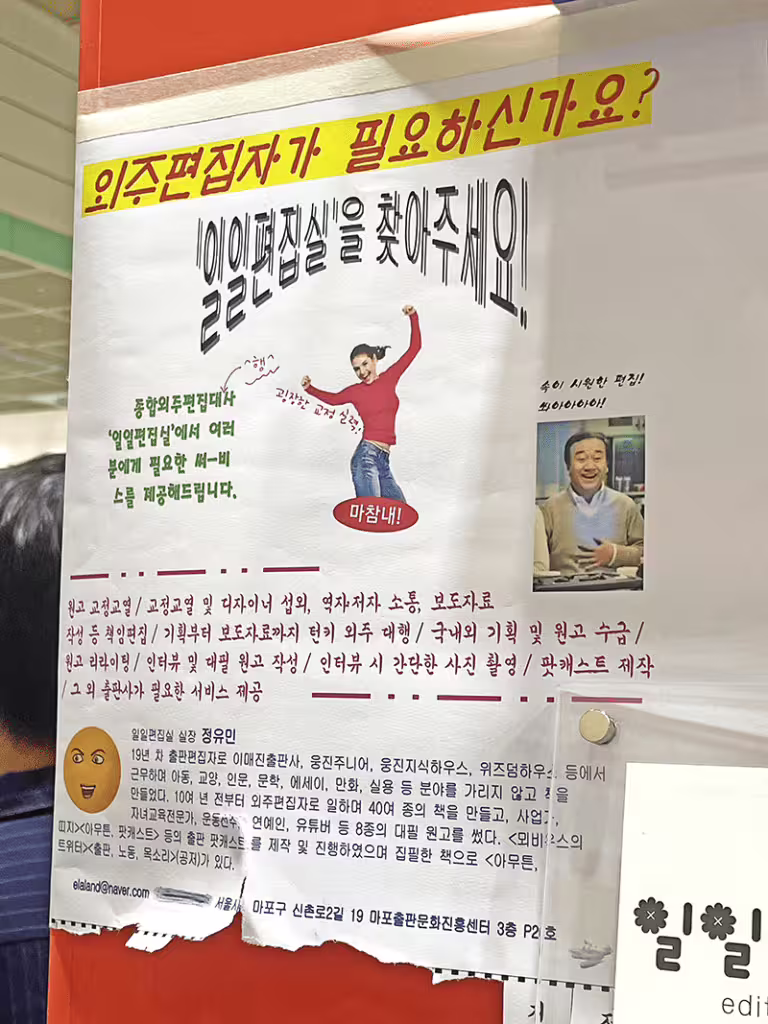 외주편집자가 필요하신가요?
'일일편집실'을 찾아주세요!
^행^
굉장한 교정 실력!
종합외주편집대사
'일일편집실'에서 여러
분에게 필요한 써-비
스를 제공해드립니다.
마참내!
속이 시원한 편집!
쏴아아아아!
원고 교정교열 / 교정교열 및 디자이너 섭외, 역자저자 소통, 보도자료
작성 등 책임편집 / 기획부터 보도자료까지 턴키 외주 대행 / 국내외 기획 및 원고 수급 /
원고 리라이팅 / 인터뷰 및 대필 원고 작성 / 인터뷰 시 간단한 사진 촬영 / 팟캐스트 제작
/ 그 외 출판사가 필요한 서비스 제공
일일편집실 실장 정유민
19년 차 출판편집자로 이매진출판사, 웅진주니어, 웅진지식하우스, 위즈덤하우스 등에서
근무하며 아동, 교양, 인문, 문학, 에세이, 만화, 실용 등 분야를 가리지 않고 책을
만들었다. 10여 년 전부터 외주편집자로 일하며 40여 종의 책을 만들고, 사업가,
자녀교육전문가, 운동선수, 연예인, 유튜버 등 8종의 대필 원고를 썼다. <뫼비우스의
띠지><아무튼, 팟캐스트> 등의 출판 팟캐스트를 제작 및 진행하였으며 집필한 책으로 <아무튼,
트위터><출판, 노동, 목소리>(공저)가 있다.
elaland@naver.com
서울시 마포구 신촌로2길 19 마포출판문화진흥센터 3층 P2 호
일일
edit